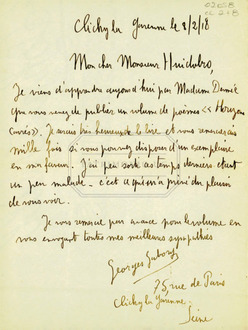 02058
cc 218
Clichy la Garenne le 8/2/18
Mon cher Monsieur Huidobro,
Je viens d'apprendre aujourd'hui par Madame
que vous venez de publier un volume de poèmes « Horizon
Carré ». Je serais très heureux de le lire et vous remercierais
mille fois si vous pouvez disposer d'un exemplaire
en ma faveur. J'ai peu sorti ces temps derniers étant
un peu malade - c'est ce qui m'a privé du plaisir
de vous voir.
Je vous remercie par avance pour le volume en
vous envoyant toutes mes meilleures sympathies
Georges Gabory
75, rue de Paris
Clichy la Garenne
Seine